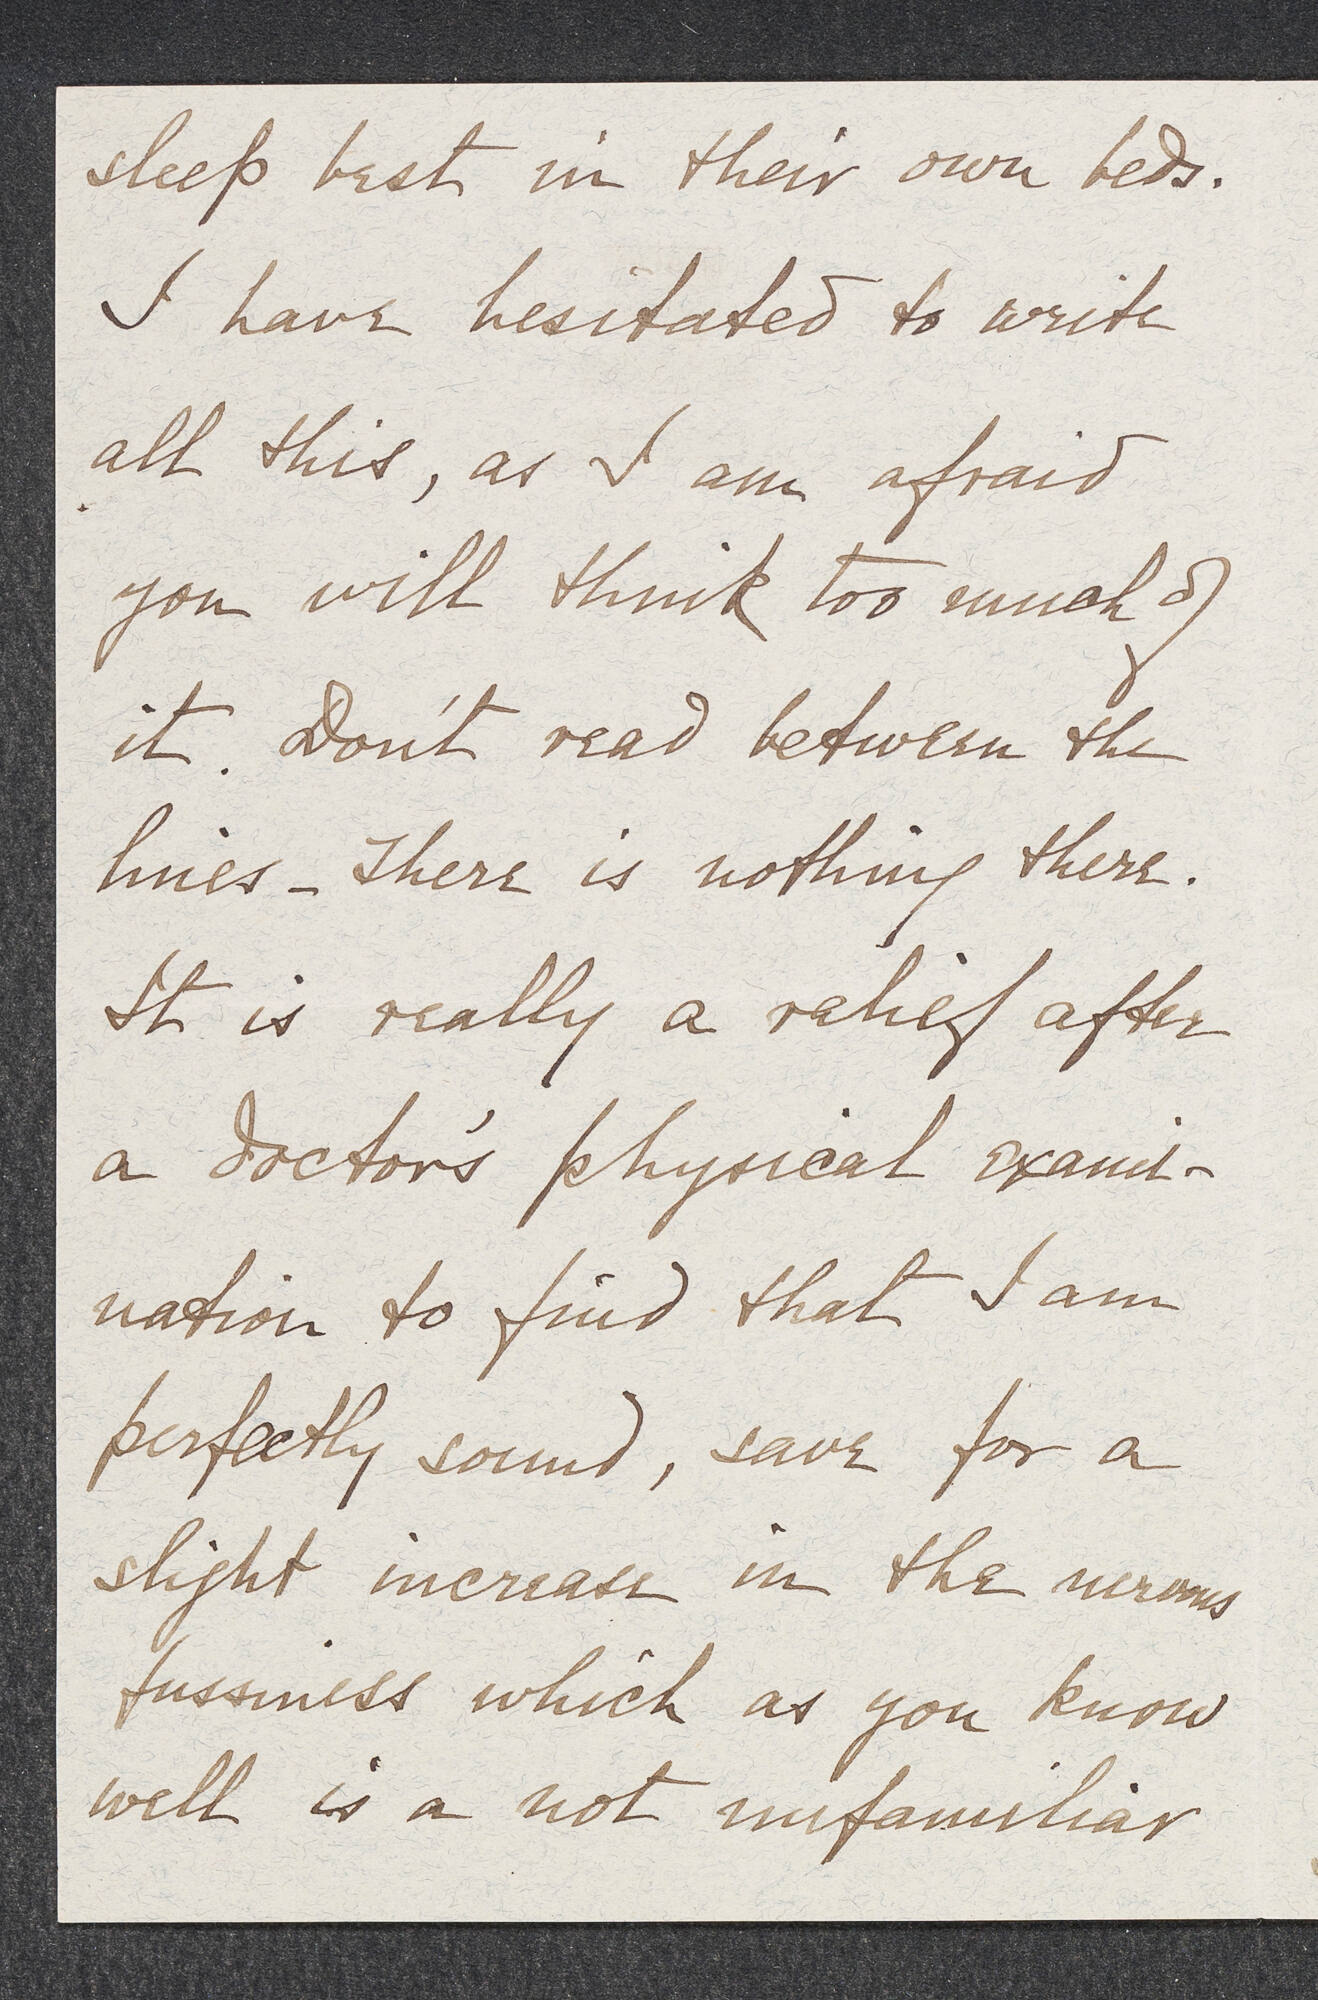 sleep best in their own beds.
I have hesitated to write
all this, as I am afraid
you will think too much of
it. Don't read between the
lines - There is nothing there.
It is really a relief after
a doctor's physical exami-
nation to find that I am
perfectly sound, save for a
slight increase in the nervous
fussiness which as you know
well is a not unfamiliar